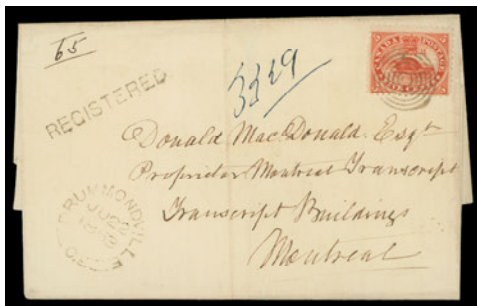 65
REGISTERED
3349
CANADA POSTAGE
FIVE CENTS
Donald MacDonald Esqr
Proprietor Montreal Transcript
Transcript Buildings
Montreal
DRUMMONDVILLE